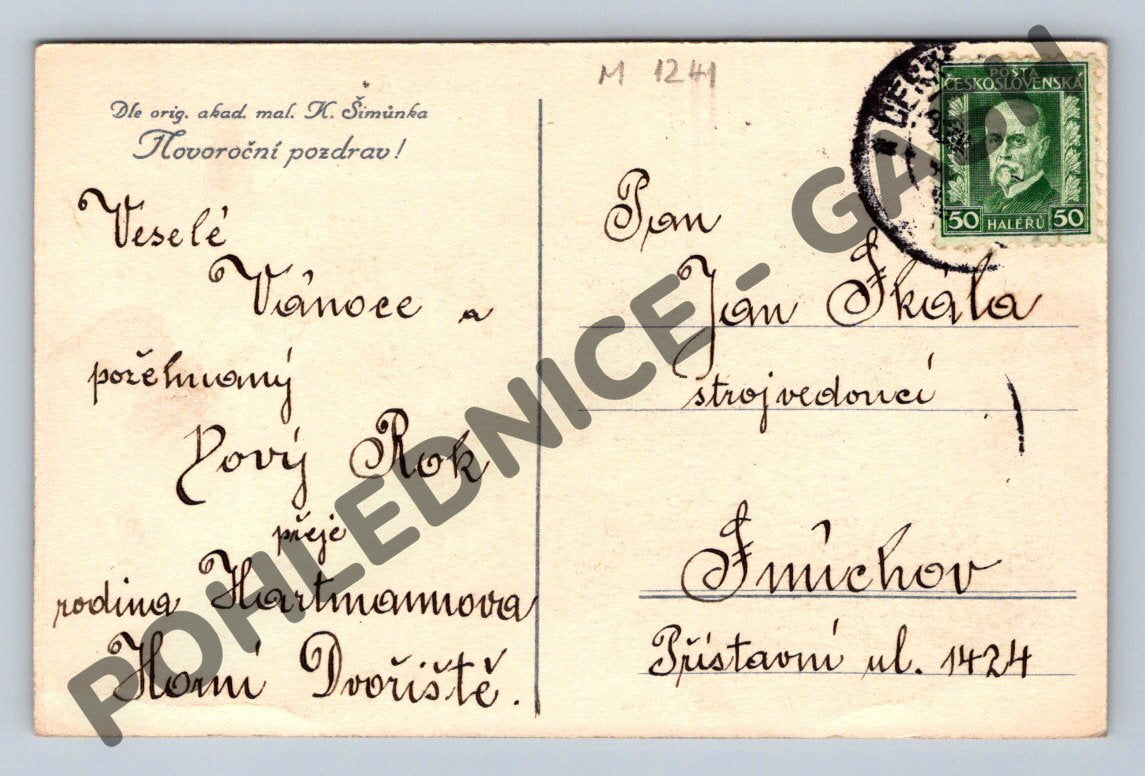 M 1241
Dle orig. akad. mal. K. Šimůnka
Novoroční pozdrav!
Veselé
Vánoce a
požehnaný
Nový Rok
přeje
rodina Hartmannova
Horní Dvořiště.
POŠTA
ČESKOSLOVENSKÁ
50 HALÉŘŮ 50
Pan
Jan Skála
strojvedoucí
Smíchov
Přístavní ul. 1424
POHLEDNICE - GALAU